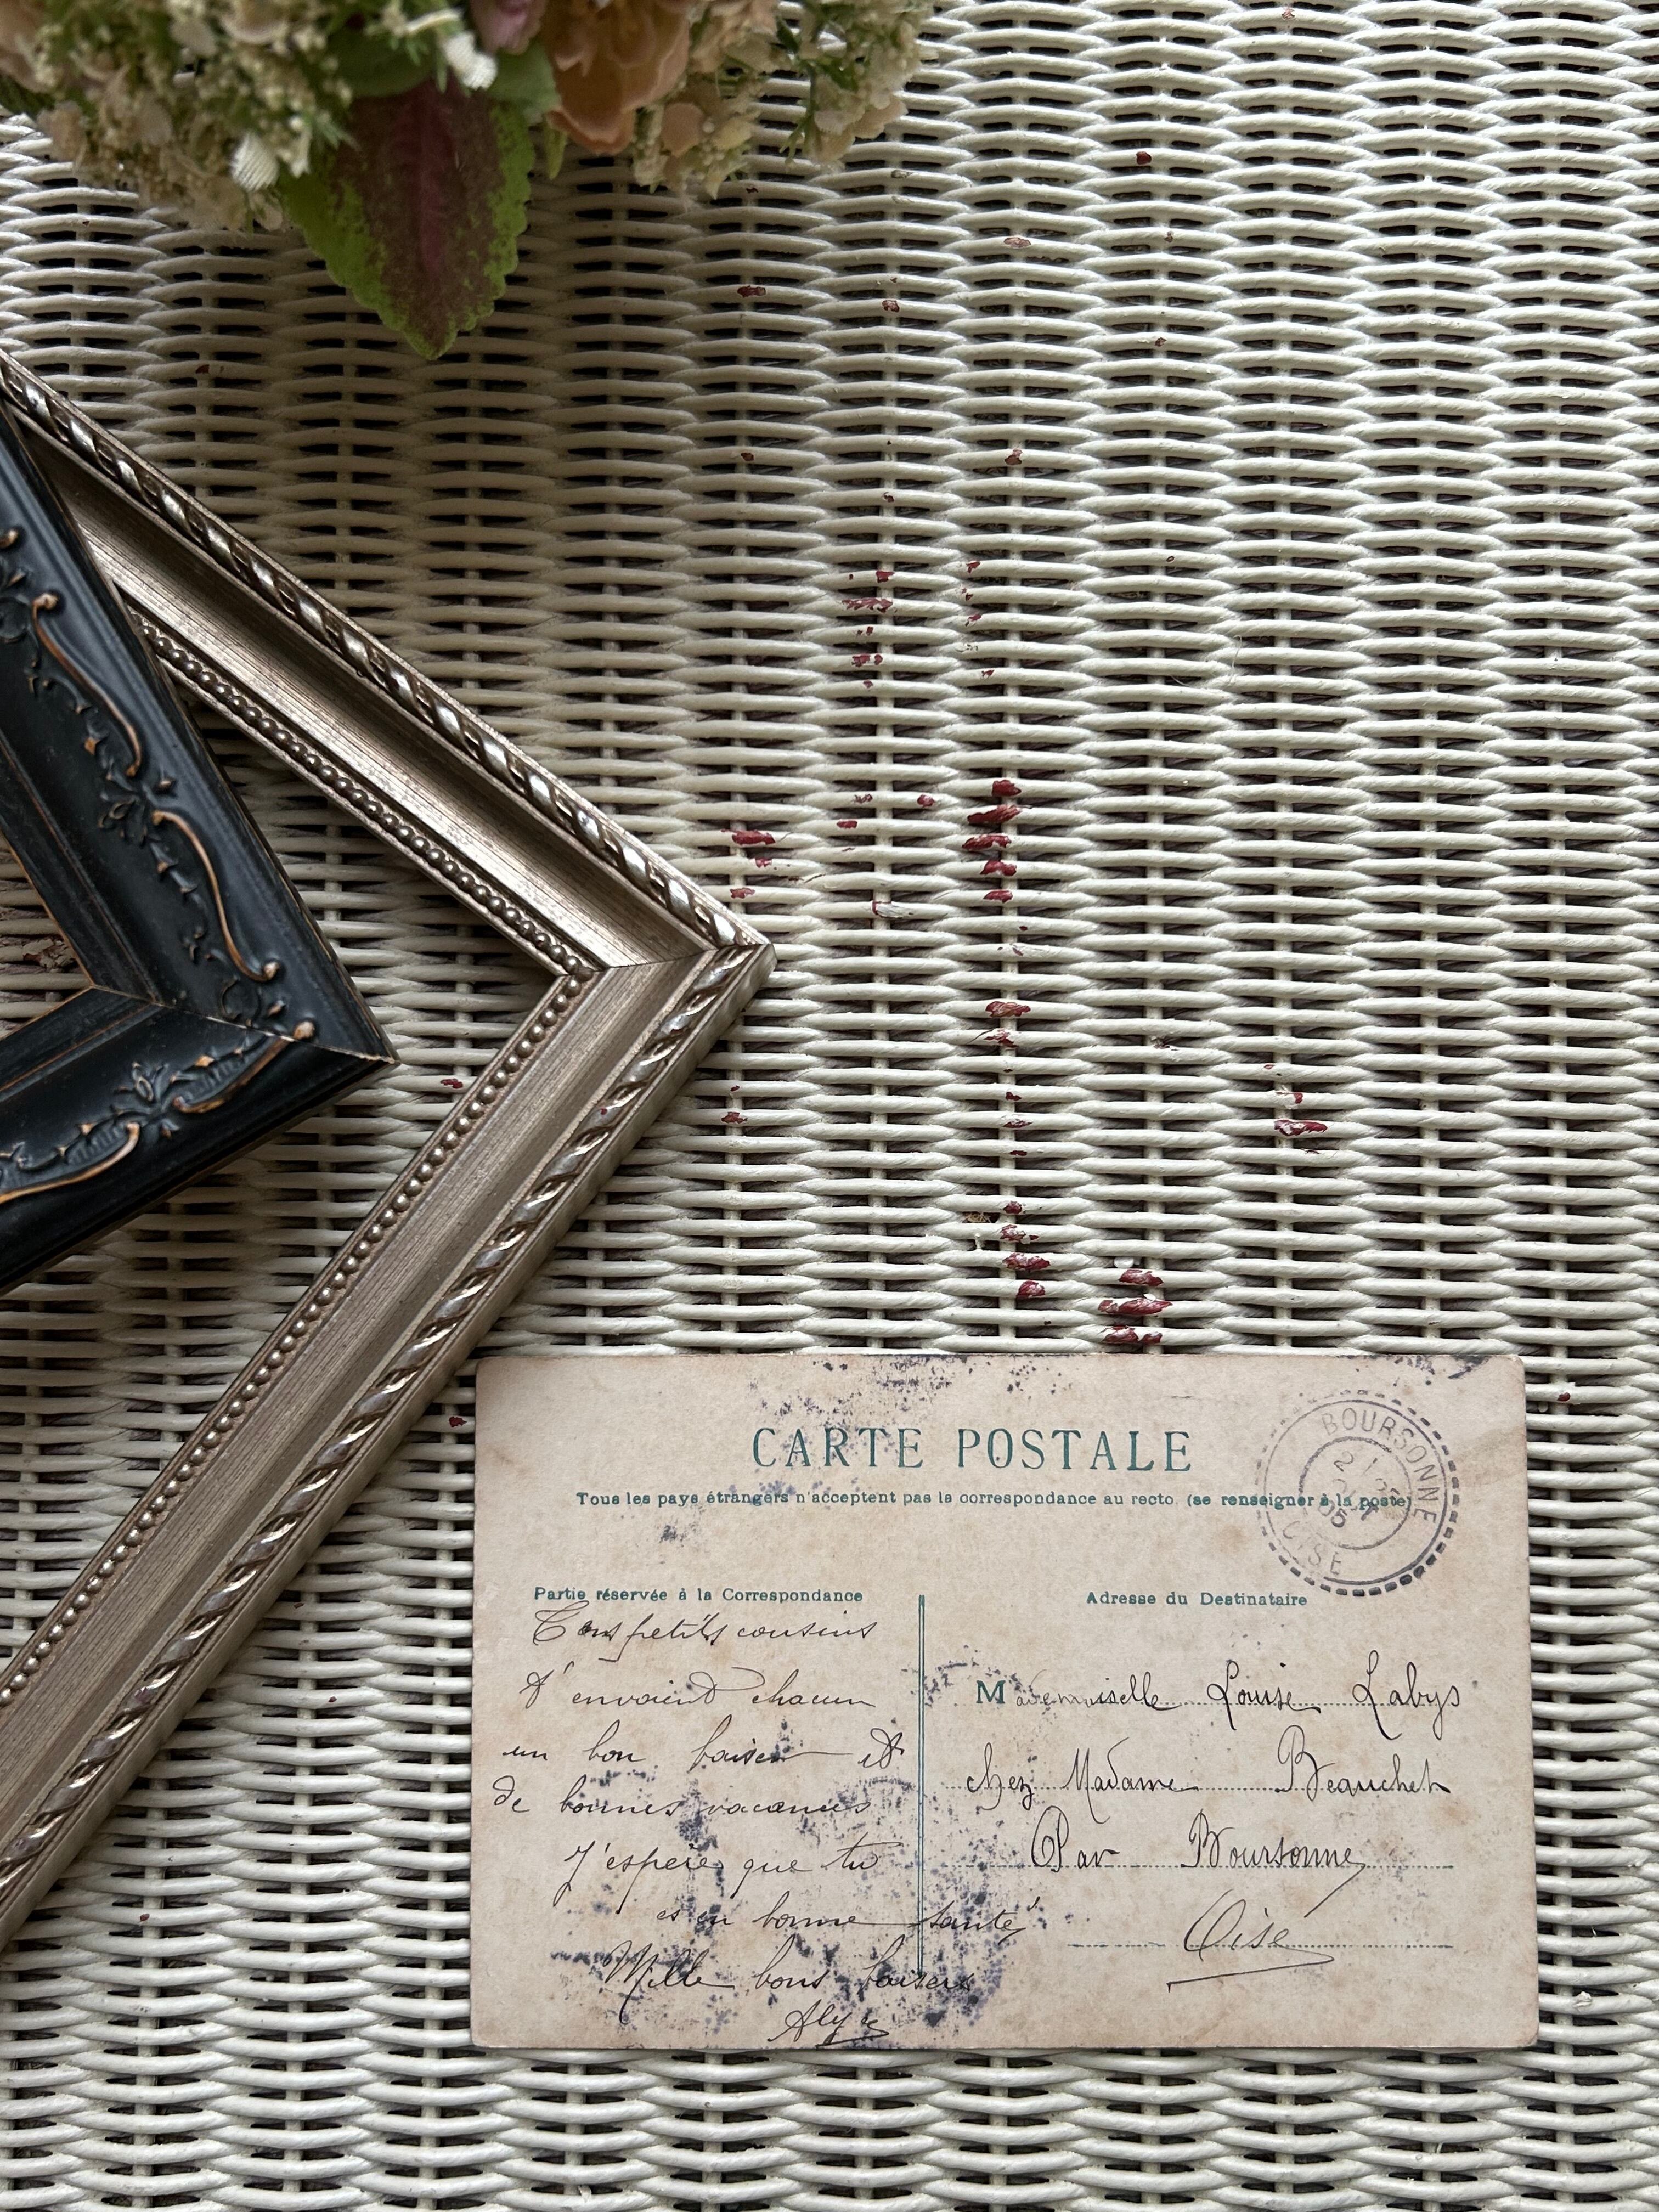 CARTE POSTALE
Tous les pays étrangers n'acceptent pas la correspondance au recto. (se renseigner à la poste)
BOURSONNE
OISE
Partie réservée à la Correspondance
petits cousins
t'envoient chacun
un bon baiser et
de bonnes vacances
J'espère que tu
es en bonne santé
Mille bons baisers
Adresse du Destinataire
Mademoiselle Louise Labys
chez Madame Beauchet
Par Boursonne
Oise